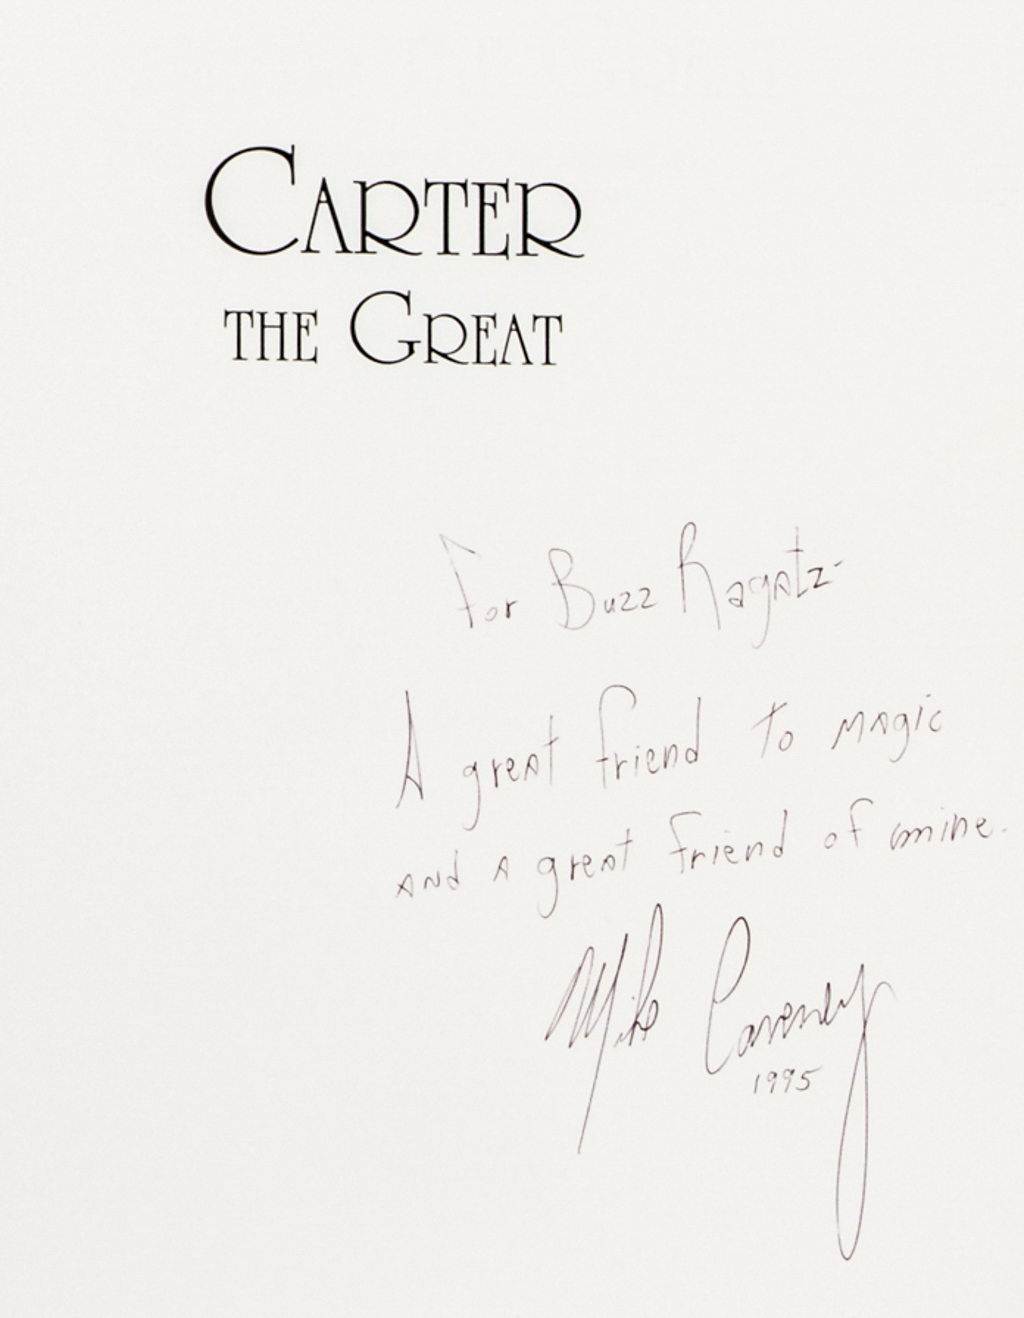 CARTER
THE GREAT
For Buzz Ragatz-
A great friend to magic
and a great friend of mine.
Mike Caveney
1995